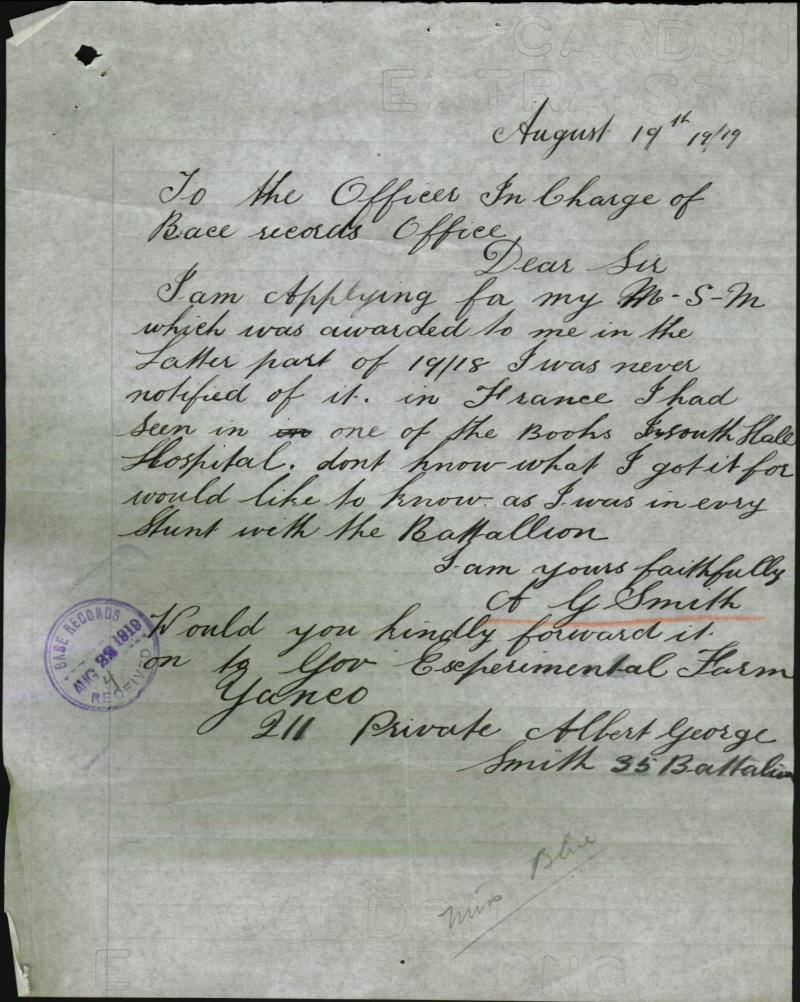 CARDON
EXTRA STR
August 19th 19/19
To the Officer In Charge of
Bace records Office
Dear Sir
I am Applying fa my M-S-M
which was awarded to me in the
Latter part of 19/18 I was never
notified of it. in France I had
Seen in in one of the Books In south Hall
Hospital. dont know what I got it for
would like to know. as I was in evry
Stunt with the Battallion
I am yours faithfully
A G Smith
Would you kindly forward it
on to Gov Experimental Farm
Yanco
211 Private Albert George
Smith 35 Battalion
BASE RECORDS
AUG 22 1919
4
RECEIVED
Miss Blue